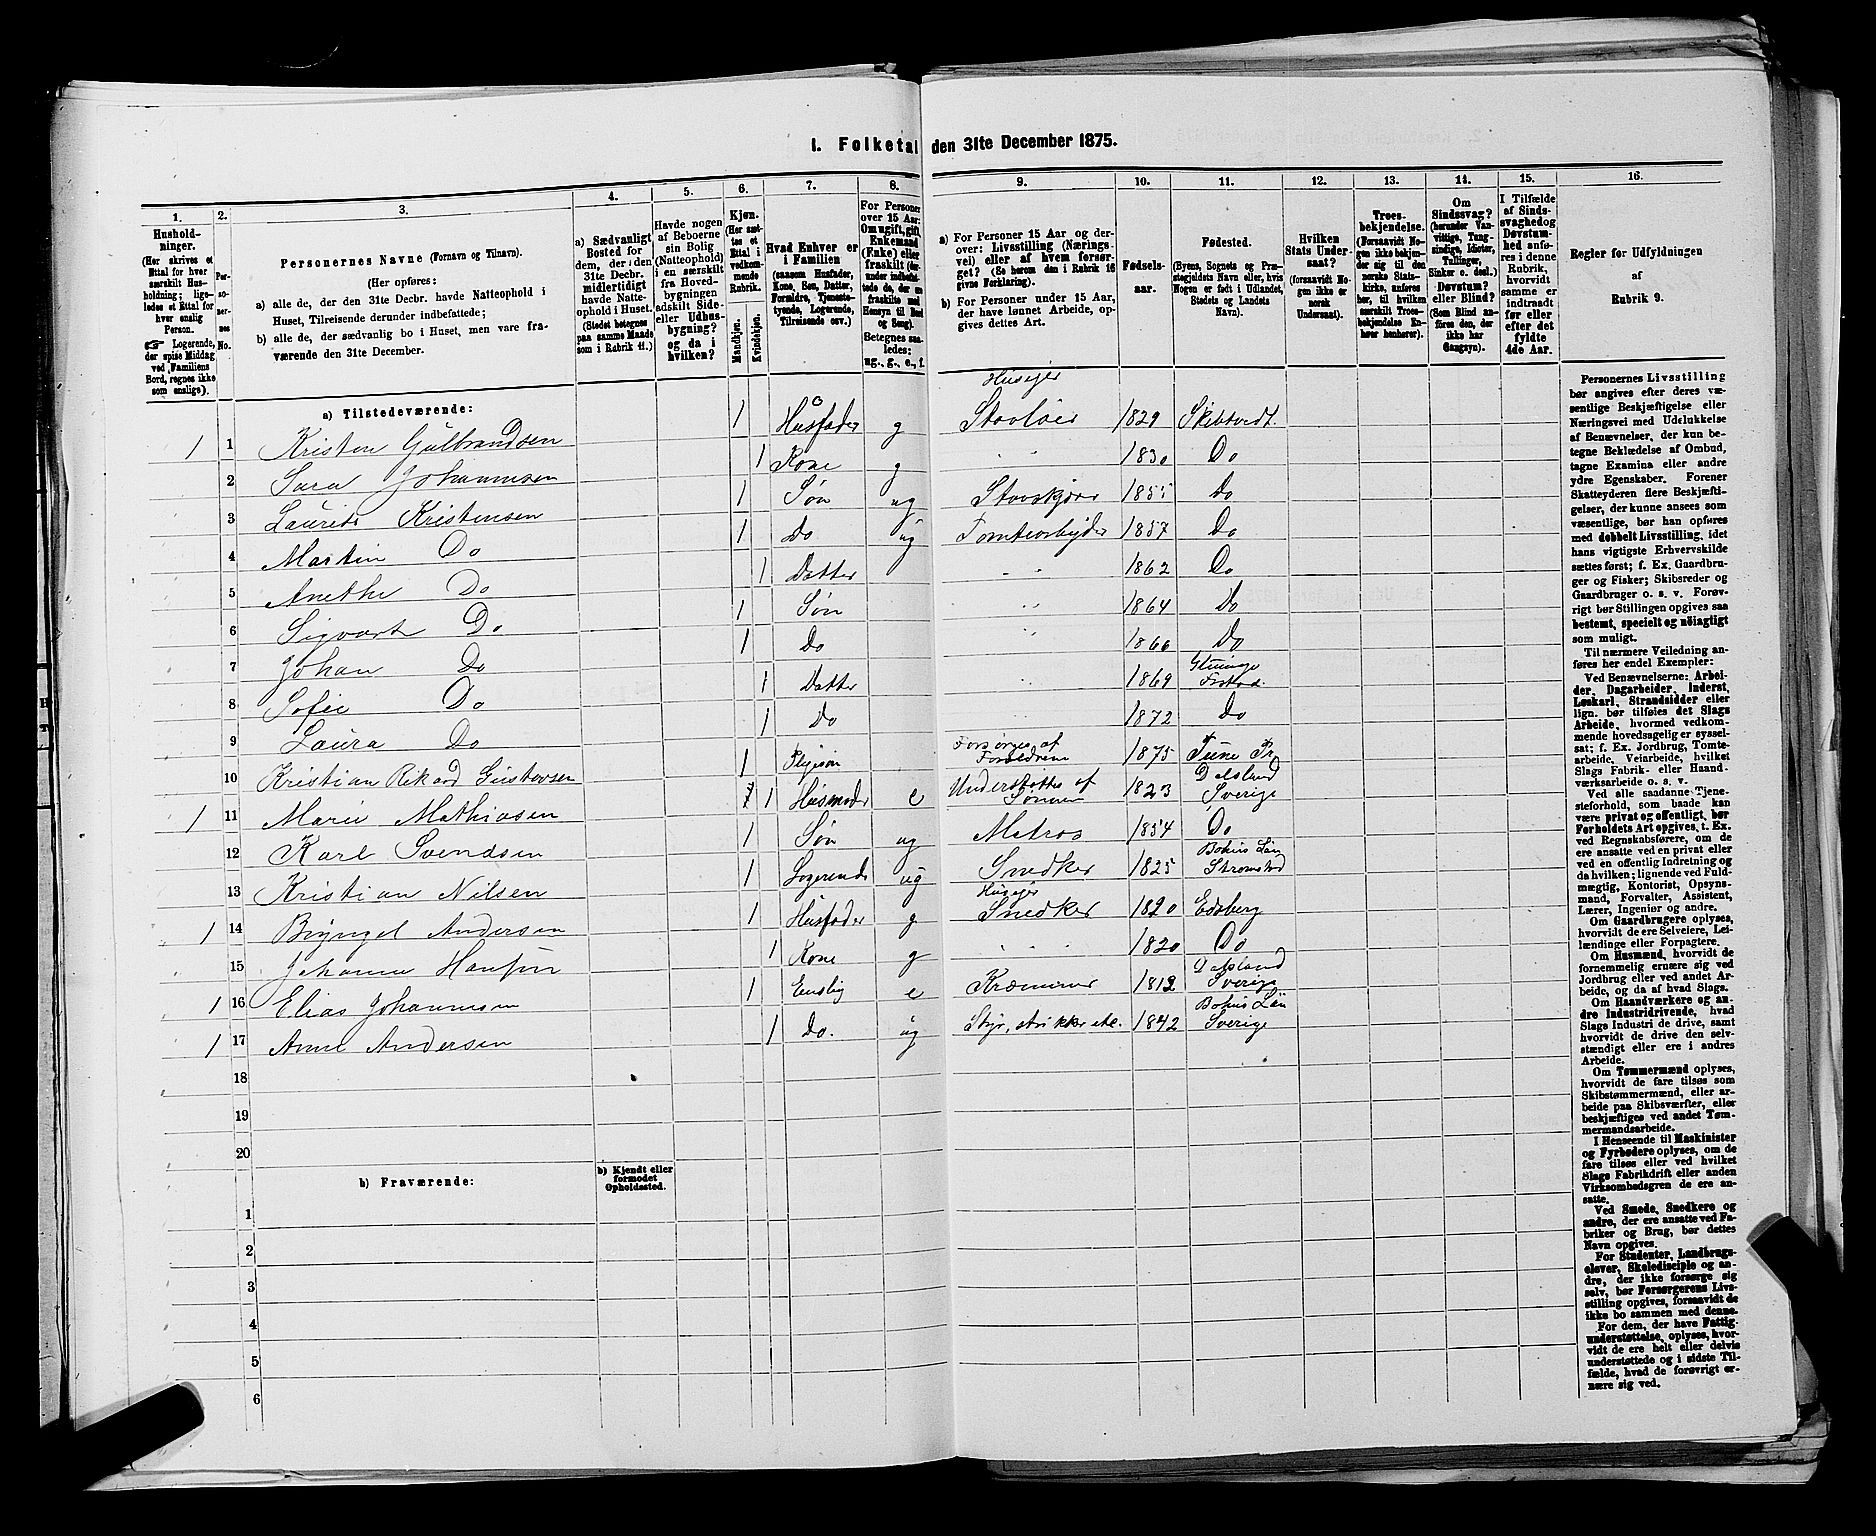 1. Folketal den 31te December 1875.
1. 2. 3. 4. 5. 6. 7. 8. 9. 10. 11. 12. 13. 14. 15. 16.
Husholdninger.
(Her skrives et Ettal for hver særskilt Husholdning; ligeledes et Ettal for hver enslig Person.
☞ Logerende, der spise Middag ved Familiens Bord, regnes ikke som enslige).
Personernes No.
Personernes Navne (Fornavn og Tilnavn).
(Her opføres:
a) alle de, der den 31te Decbr. havde Natteophold i Huset, Tilreisende derunder indbefattede;
b) alle de, der sædvanlig bo i Huset, men vare fraværende den 31te December.
a) Sædvanligt Bosted for dem, der i den 31te Decbr. midlertidigt havde Natteophold i Huset.
(Stedet betegnes paa samme Maade som i Rubrik 11.)
Havde nogen af Beboerne sin Bolig (Natteophold) i en særskilt fra Hovedbygningen adskilt Side- eller Udhusbygning? og da i hvilken?
Kjøn.
(Her sættes et Ettal i vedkommende Rubrik.
Mandkjøn. Kvindekjøn.
Hvad Enhver er i Familien
(saasom Husfader, Kone, Søn, Datter, Forældre, Tjenestetyende, Logerende, Tilreisende osv.)
For Personer over 15 Aar: Om ugift, gift, Enkemand (Enke) eller fraskilt (derunder indbefattede de, der ere fraskilte med Hensyn til Bord og Seng).
Betegnes saaledes: ug., g., e., f.
a) For Personer 15 Aar og derover: Livsstilling (Næringsvei) eller af hvem forsørget? (Se herom den i Rubrik 16 givne Forklaring).
b) For Personer under 15 Aar, der have lønnet Arbeide, opgives dettes Art.
Fødselsaar.
Fødested.
(Byens, Sognets og Præstegjeldets Navn eller, hvis Nogen er født i Udlandet, Stedets og Landets Navn).
Hvilken Stats Undersaat?
(forsaavidt Nogen ikke er norsk Undersaat).
Troesbekjendelse.
(Forsaavidt Nogen ikke bekjender sig til den norske Statskirke, anføres her, til hvilken særskilt Troesbekjendelse Enhver henhører).
Om Sindssvag? (herunder Vanvittige, Tungsindige, Idioter, Tullinger, Sinker o. desl.) Døvstum? eller Blind? (Som Blind anføres den, der ikke har Gangsyn).
I Tilfælde af Sindssvaghed og Døvstumhed anføres i denne Rubrik, hvorvidt samme er indtraadt før eller efter det fyldte 4de Aar.
Regler for Udfyldningen af Rubrik 9.
a) Tilstedeværende:
1 1 Kristen Gulbrandsen 1 Husfader g Huseier 1829 Skibtvedt.
2 Sara Johannesen 1 Kone g " " 1830 Do
3 Laurids Kristensen 1 Søn ug 1855 Do
4 Martin Do 1 Do ug Tomtearbejder 1857 Do
5 Anethe Do 1 Datter " " 1862 Do
6 Sigvart Do 1 Søn " " 1864 Do
7 Johan Do 1 Do " " 1866 Do
8 Sofie Do 1 Datter 1869
9 Laura Do 1 Do 1872 Do
10 Kristian Rikard Gustavsen 1 Plejesøn Forsørges af Forældrene 1875 Tune Pr
1 11 Marie Mathiasen 1 Husmoder e Understøttes af Sønnen 1823 Dalsland Sverige
12 Karl Svendsen 1 Søn ug Matros 1854 Do
13 Kristian Nilsen 1 Logerende ug Snedker 1825 Bohus Län Strømstad
1 14 Bryngel Andersen 1 Husfader g Huseier Snedker 1820 Edsberg
15 Johanne Hansen 1 Kone g " " " 1820 Do
1 16 Elias Johannesen 1 Enslig e Kræmmer 1812 Dalsland Sverige
1 17 Anne Andersen 1 Do. ug Syr, strikker etc. 1842 Bohus Län Sverige
18
19
20
b) Fraværende:
b) Kjendt eller formodet Opholdssted.
1
2
3
4
5
6
Personernes Livsstilling
bør angives efter deres væ-
sentlige Beskjæftigelse eller
Næringsvei med Udelukkelse
af Benævnelser, der kun be-
tegne Beklædelse af Ombud,
tagne Examina eller andre
ydre Egenskaber. Forener
Skatteyderen flere Beskjæfti-
gelser, der kunne ansees som
væsentlige, bør han opføres
med dobbelt Livsstilling, idet
hans vigtigste Erhvervskilde
sættes først; f. Ex. Gaardbru-
ger og Fisker; Skibsreder og
Gaardbruger o. s. v. Forøv-
rigt bør Stillingen opgives saa
bestemt, specielt og nöiagtigt
som muligt.
Til nærmere Veiledning an-
føres her endel Exempler:
Ved Benævnelserne: Arbei-
der, Dagarbeider, Inderst,
Løskarl, Strandsidder eller
lign. bør tilføies det Slags
Arbeide, hvormed vedkom-
mende hovedsagelig er syssel-
sat; f. Ex. Jordbrug, Tomte-
arbeide, Veiarbeide, hvilket
Slags Fabrik- eller Haand-
værksarbeide o. s. v.
Ved alle saadanne Tjene-
steforhold, som baade kan
være privat og offentligt, bør
Forholdets Art opgives, t. Ex.
ved Regnskabsførere, om de
ere ansatte ved en privat eller
ved en offentlig Indretning og
da hvilken; lignende ved Fuld-
mægtig, Kontorist, Opsyns-
mand, Forvalter, Assistent,
Lærer, Ingeniør og andre.
Om Gaardbrugere oplyses,
hvorvidt de ere Selveiere, Lei-
lændinge eller Forpagtere.
Om Husmænd, hvorvidt de
fornemmelig ernære sig ved
Jordbrug eller ved andet Ar-
beide, og da af hvad Slags.
Om Haandværkere og an-
dre Industridrivende, hvad
Slags Industri de drive, samt
hvorvidt de drive den selv-
stændigt eller ere i andres
Arbeide.
Om Tømmermænd oplyses,
hvorvidt de fare tilsøs som
Skibstømmermænd, eller ar-
beide paa Skibsværfter, eller
beskjæftiges ved andet Tøm-
mermandsarbeide.
I Henseende til Maskinister
og Fyrbødere oplyses, om de
fare tilsøs eller ved hvilket
Slags Fabrikdrift eller anden
Virksomhedsgren de ere an-
satte.
Ved Smede, Snedkere og
andre, der ere ansatte ved Fa-
briker og Brug, bør dettes
Navn opgives.
For Studenter, Landbrugs-
elever, Skoledisciple og an-
dre, der ikke forsørge sig
selv, bør Forsørgerens Livs-
stilling opgives, forsaavidt de
ikke bo sammen med denne.
For dem, der have Fattig-
understøttelse, oplyses, hvor-
vidt de ere helt eller delvis
understøttede og i sidste Til-
fælde, hvad de forøvrigt er-
nære sig ved.